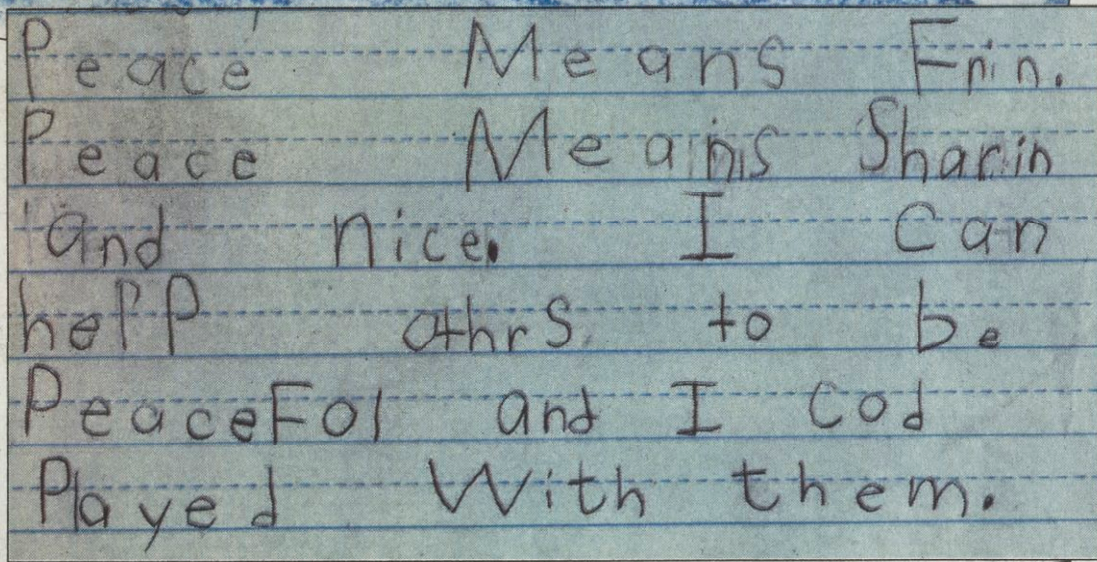 Peace Means Frin.
Peace Means Sharin
and nice. I Can
help athrs to be
PeaceFol and I cod
Played With them.